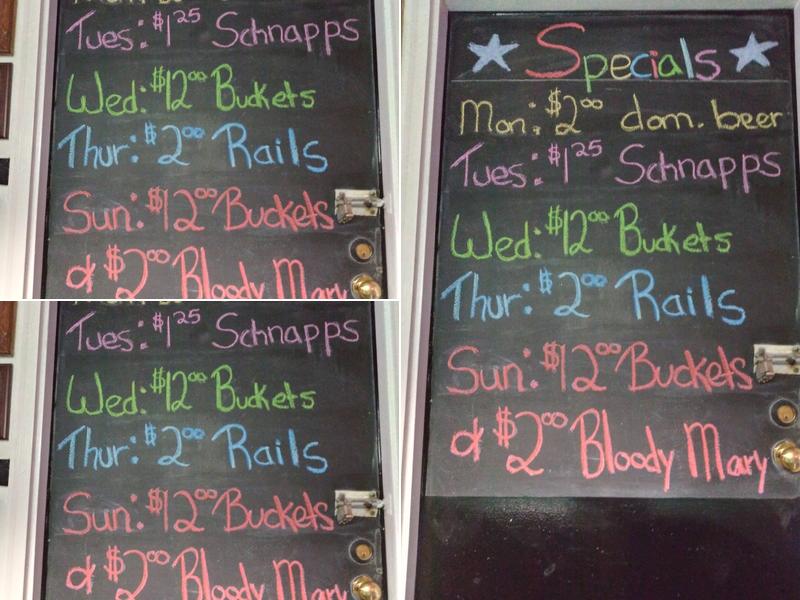 Tues: $1.25 Schnapps
Wed: $12.00 Buckets
Thur: $2.00 Rails
Sun: $12.00 Buckets
& $2.00 Bloody Mary
Tues: $1.25 Schnapps
Wed: $12.00 Buckets
Thur: $2.00 Rails
Sun: $12.00 Buckets
& $2.00 Bloody Mary
Specials
Mon: $2.00 dom. beer
Tues: $1.25 Schnapps
Wed: $12.00 Buckets
Thur: $2.00 Rails
Sun: $12.00 Buckets
& $2.00 Bloody Mary